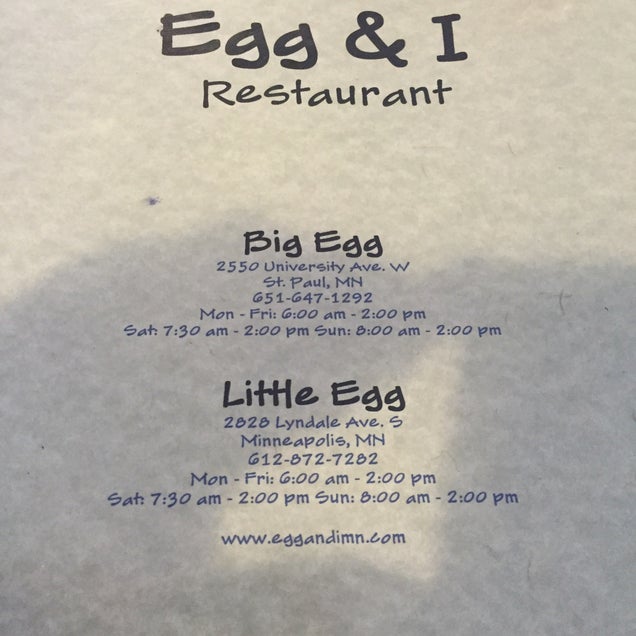 Egg & I
Restaurant
Big Egg
2550 University Ave. W
St. Paul, MN
651-647-1292
Mon - Fri: 6:00 am - 2:00 pm
Sat: 7:30 am - 2:00 pm Sun: 8:00 am - 2:00 pm
Little Egg
2828 Lyndale Ave. S
Minneapolis, MN
612-872-7282
Mon - Fri: 6:00 am - 2:00 pm
Sat: 7:30 am - 2:00 pm Sun: 8:00 am - 2:00 pm
www.eggandimn.com